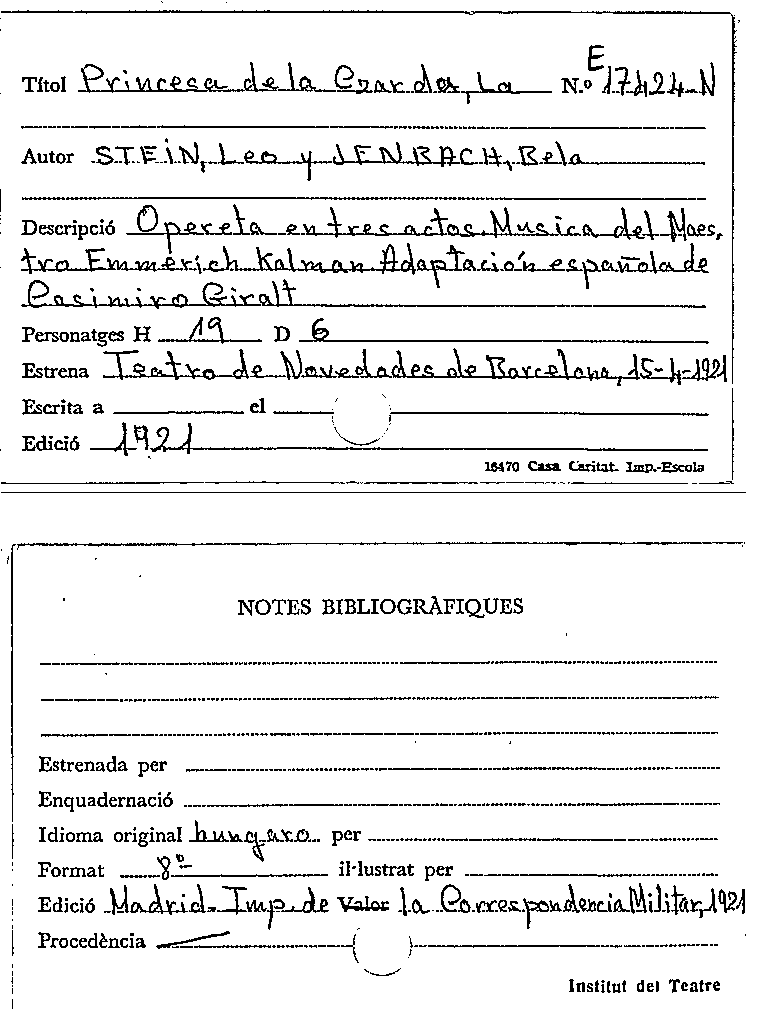 E
Títol Princesa de la Czarda, La N.º 17424-N
Autor STEIN, Leo y JENBACH, Bela
Descripció Opereta en tres actos. Musica del Maes,
tro Emmerich Kalman Adaptación española de
Casimiro Giralt
Personatges H 19 D 6
Estrena Teatro de Novedades de Barcelona, 15-4-1921
Escrita a el
Edició 1921
16470 Casa Caritat. Imp.-Escola
NOTES BIBLIOGRÀFIQUES
Estrenada per
Enquadernació
Idioma original hungaro per
Format 8º il·lustrat per
Edició Madrid. Imp. de Valor la Correspondencia Militar, 1921
Procedència
Institut del Teatre